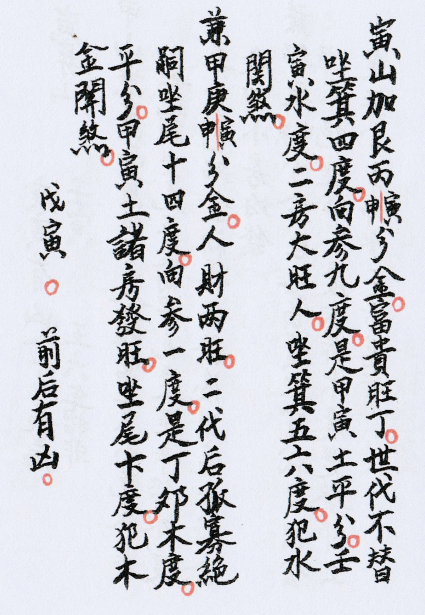 寅山加艮丙寅申分金。富貴旺丁。世代不替
坐箕四度。向参九度。是甲寅土平分。壬
寅水度。二房大旺人。坐箕五六度。犯水
関煞。
兼甲庚寅申分金。人財两旺。二代后孤寡絶
嗣坐尾十四度。向参一度。是丁卯木度。
平分。甲寅土諸房發旺。坐尾十八度。犯木
金関煞。
戊寅。前后有凶。